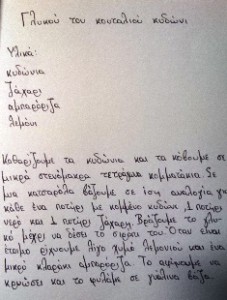 Γλυκού του κουταλιού κυδώνι
Υλικά:
κυδώνια
ζάχαρη
αμπαρόριζα
λεμόνι
Καθαρίζουμε τα κυδώνια και τα κόβουμε σε
μικρά στενόμακρα τετράγωνα κομματάκια. Σε
μια κατσαρόλα βάζουμε σε ίση αναλογία για
κάθε ένα ποτήρι με κομμένο κυδώνι, 1 ποτήρι
νερό και 1 ποτήρι ζάχαρη. Βράζουμε το γλυ-
κό μέχρι να δέσει το σιρόπι του. Όταν είναι
έτοιμο ρίχνουμε λίγο χυμό λεμονιού και ένα
μικρό κλαράκι αμπαρόριζα. Το αφήνουμε να
κρυώσει και το φυλάμε σε γυάλινα βάζα.